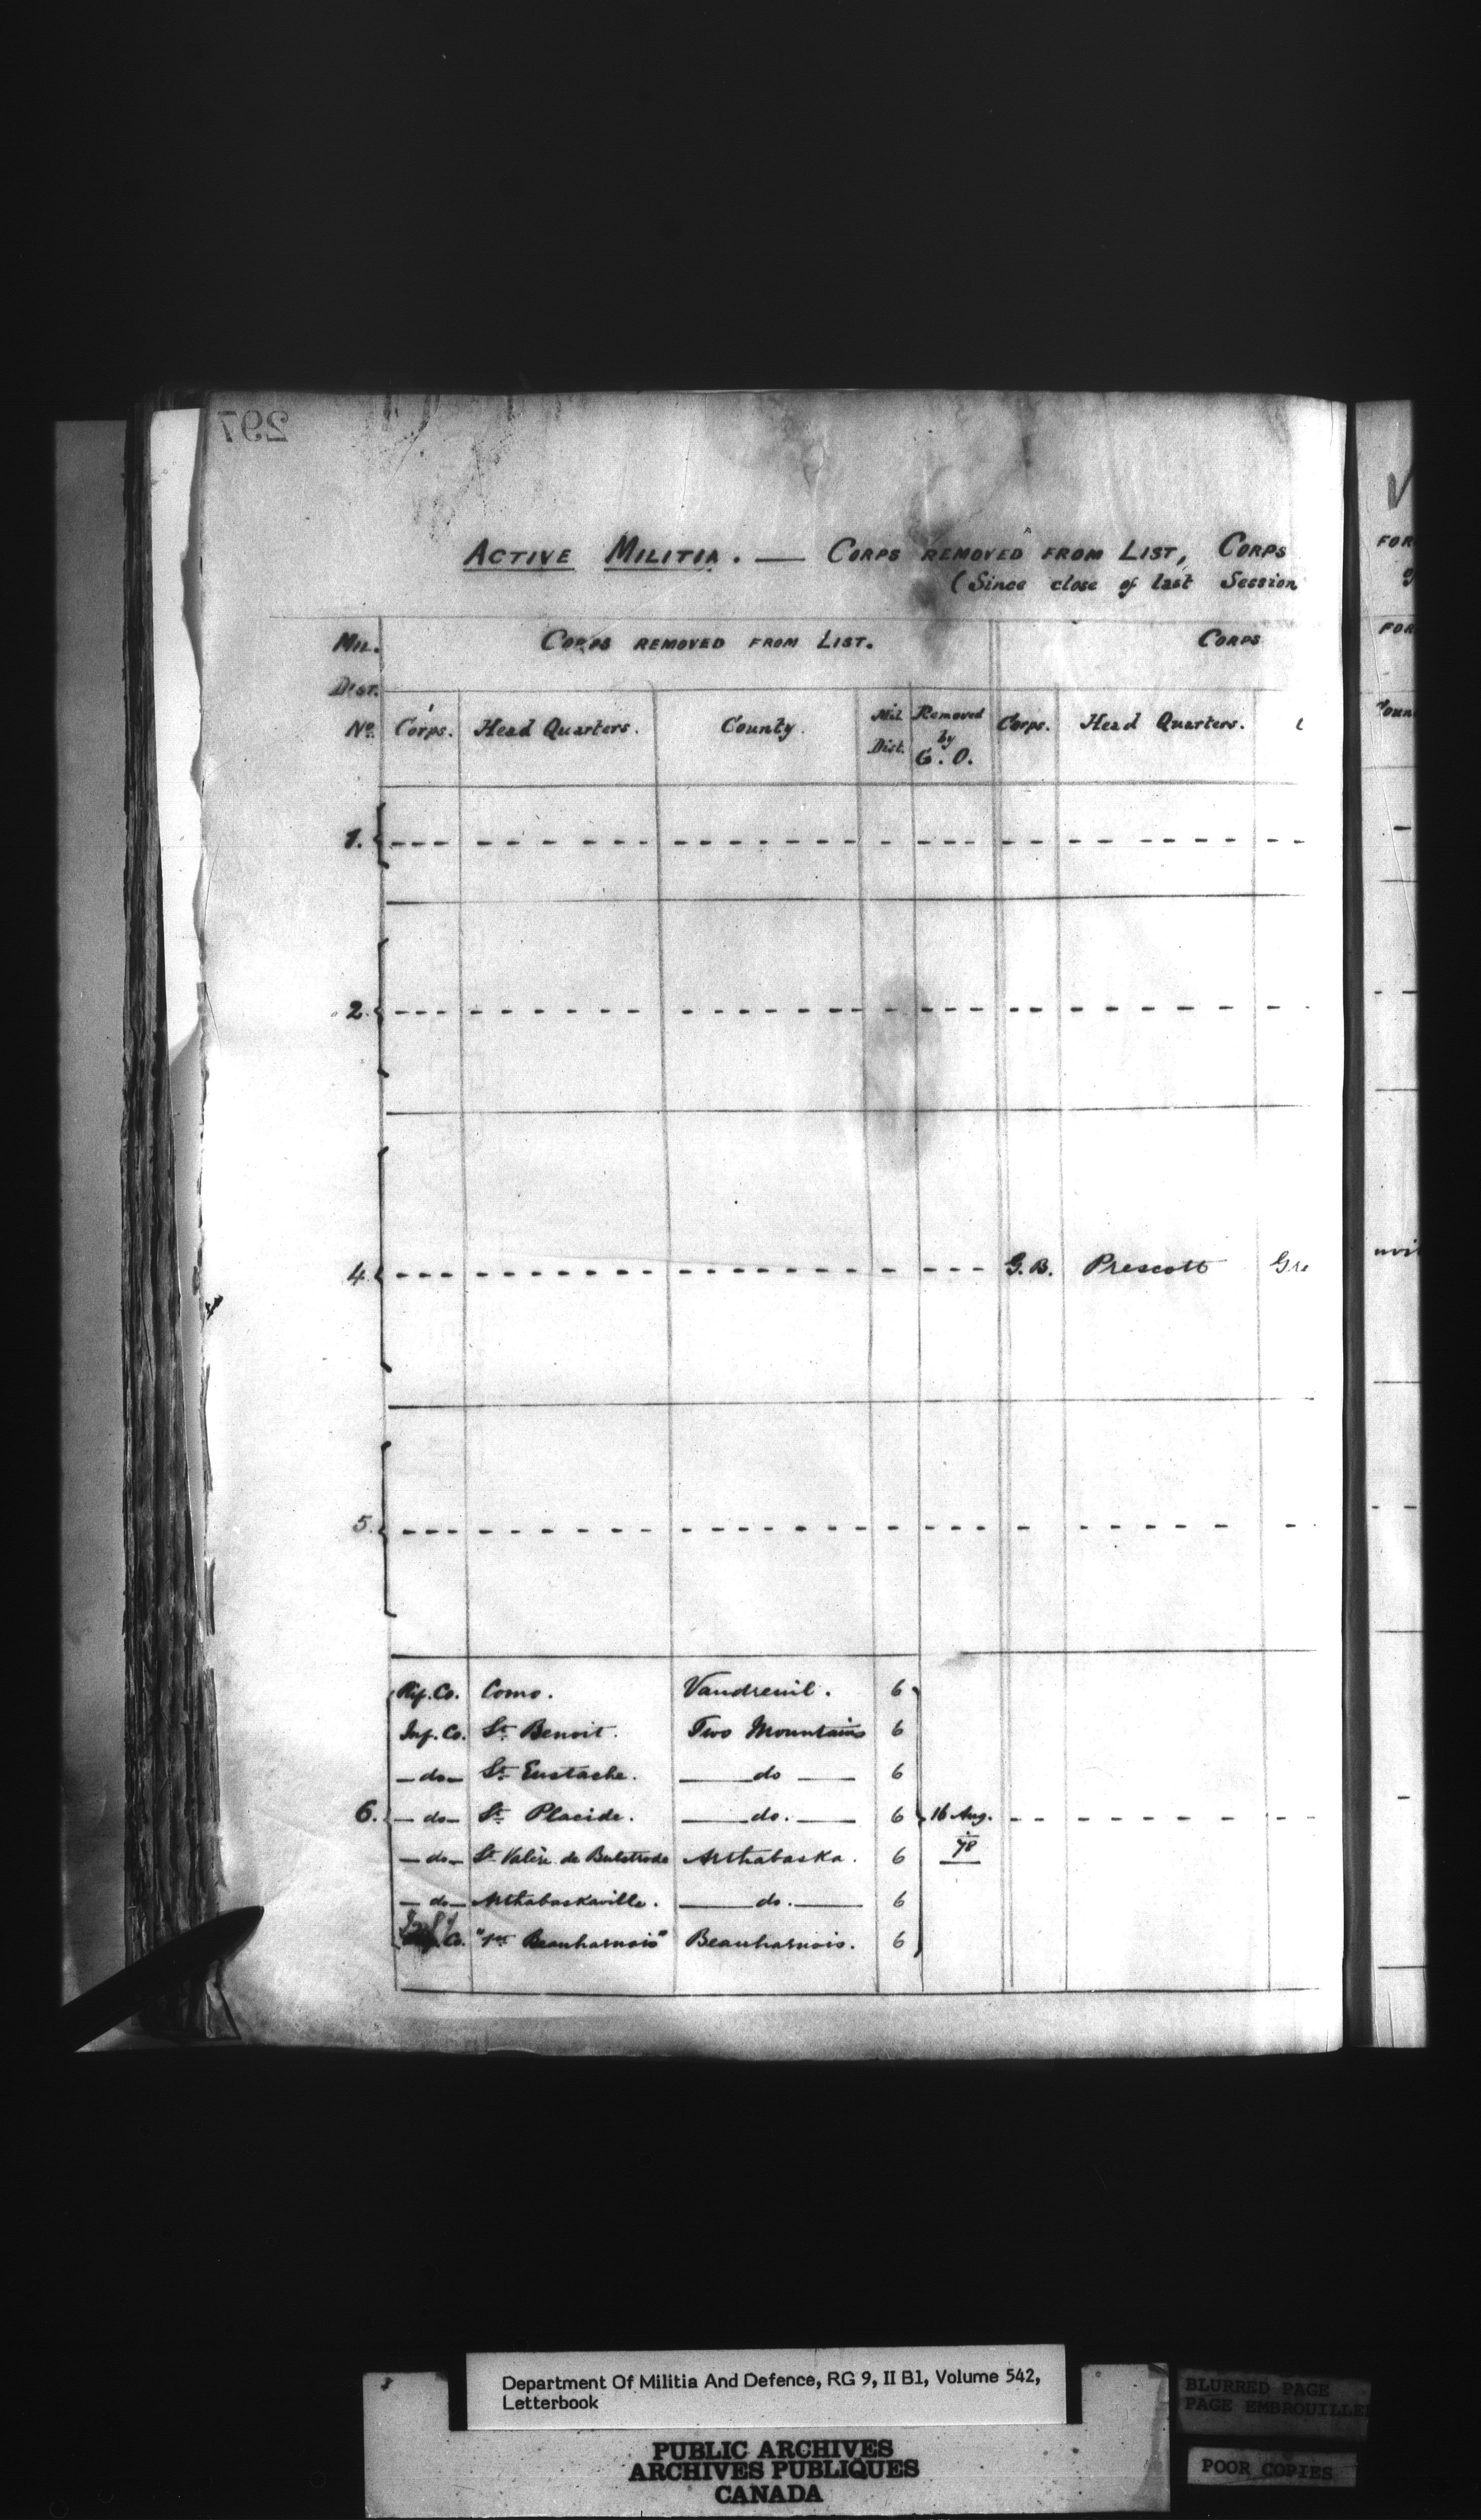 297
ACTIVE MILITIA. — CORPS REMOVED FROM LIST, CORPS
(Since close of last Session
MIL. DIST. No.
CORPS REMOVED FROM LIST.
CORPS
Corps. Head Quarters. County. Mil. Dist. Removed by G. O. Corps. Head Quarters.
1.
2.
4. G. B. Prescott Gre
5.
Rif. Co. Como. Vaudreuil. 6
Inf. Co. St. Benoit. Two Mountains 6
—do— St. Eustache. —do— 6
6. —do— St. Placide. —do.— 6 16 Aug. 78
—do— St. Valère de Bulstrode Arthabaska. 6
—do— Arthabaskaville. —do.— 6
Co. "1st Beauharnois" Beauharnois. 6
FOR
FOR
Department Of Militia And Defence, RG 9, II B1, Volume 542,
Letterbook
PUBLIC ARCHIVES
ARCHIVES PUBLIQUES
CANADA
BLURRED PAGE
PAGE EMBROUILLEE
POOR COPIES